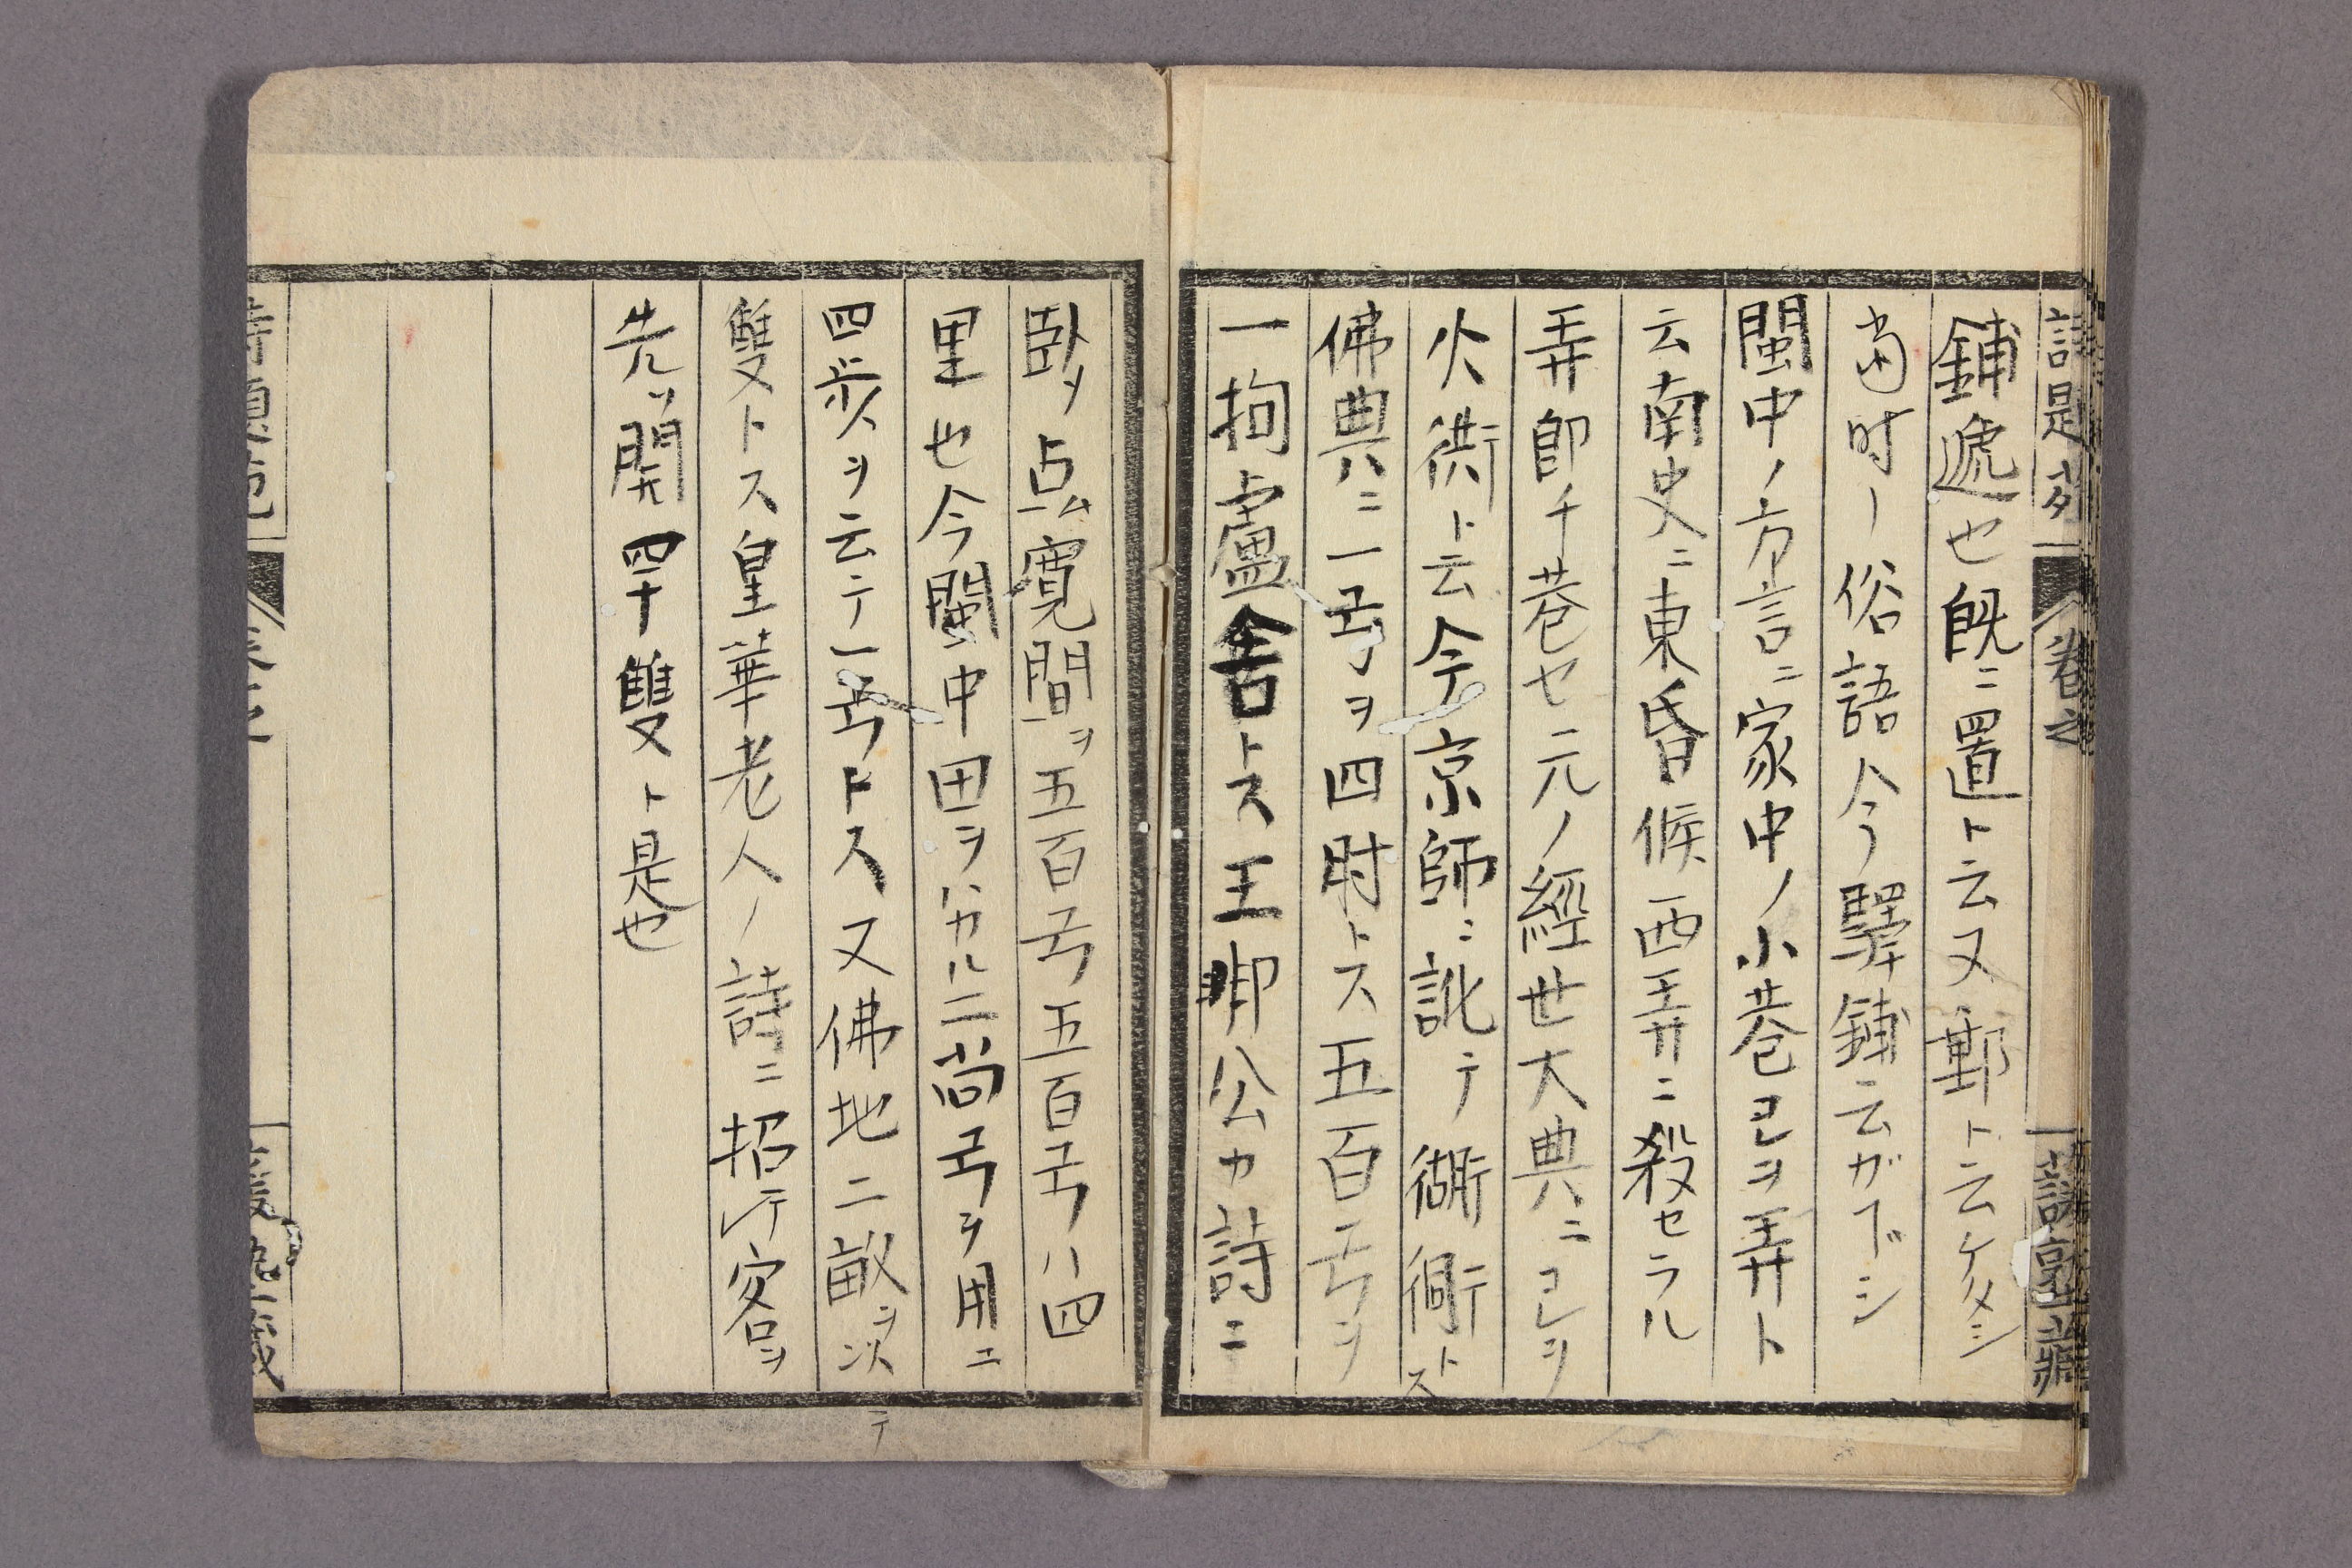 鋪遞也既ニ置ト云又郵ト云ケメシ
当时ノ俗語今ノ驛鋪云ガ下シ
閩中ノ方言ニ家中ノ小巷コレヲ弄ト
云南史ニ東昏候西弄ニ殺セラル
弄即チ巷セ元ノ經世大典ニコレヲ
火衖ト云今京師ニ訛テ衚衕トス
佛典ニ一弓ヲ四肘トス五百弓ヲ
一拘盧舍トス王荆公カ詩ニ
臥ソ占寛閒ヲ五百弓五百弓ハ四
里也今閩中田ヲハカル二尚弓ヲ用ニ
四步ヲ云テ一弓トス又佛地二畝ヲ以テ
雙トス皇華老人ノ詩ニ招テ客ヲ
先ツ開四十雙ト是也